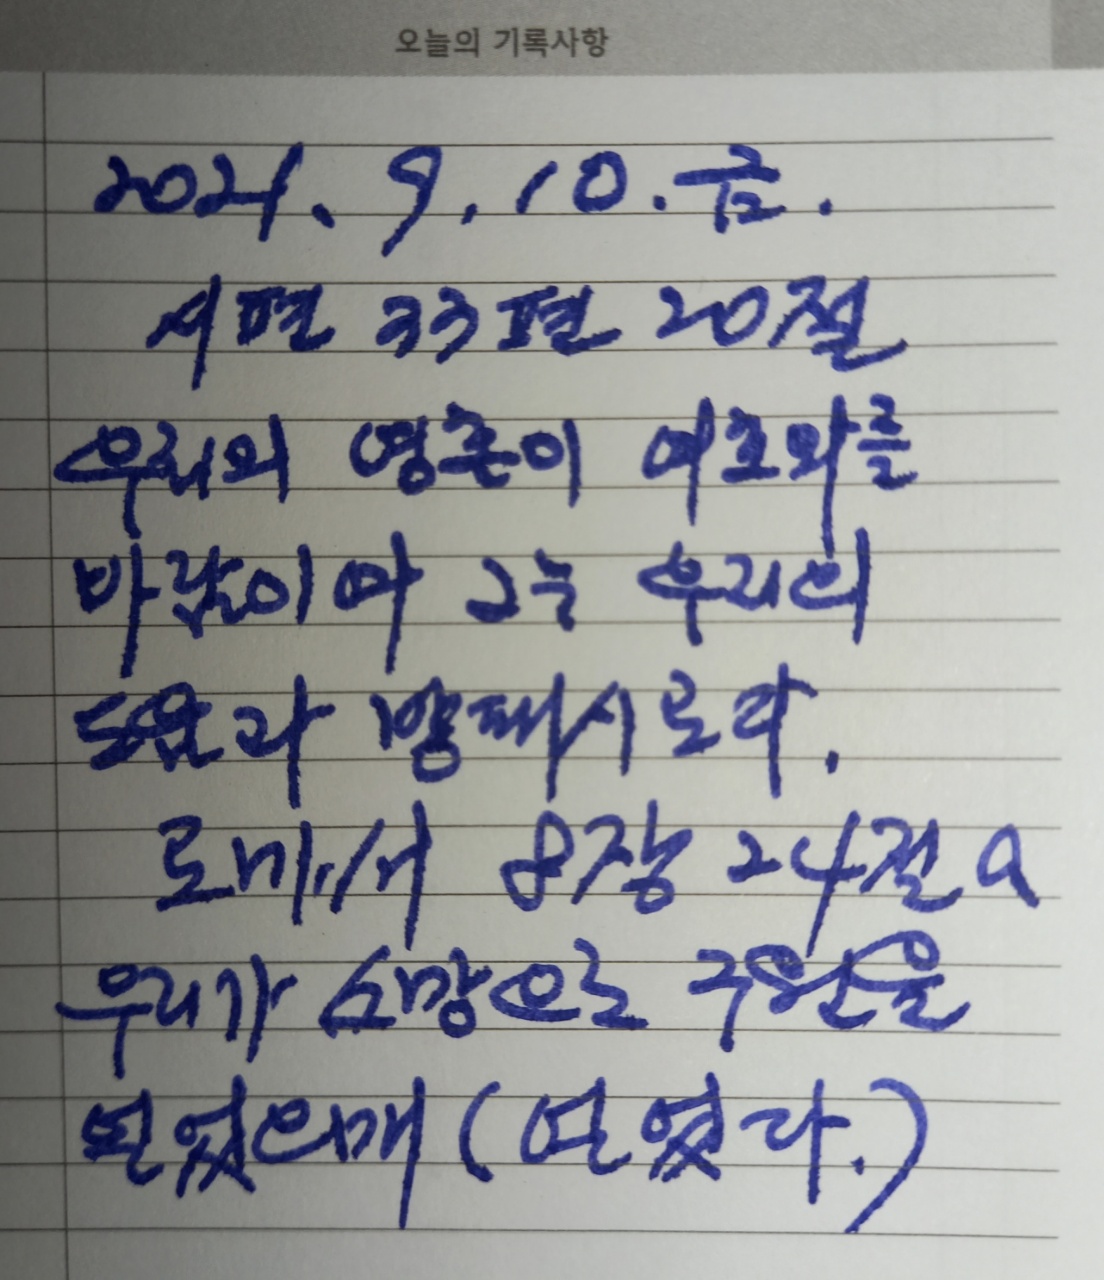 오늘의 기록사항
2021. 9. 10. 금.
시편 33편 20절
우리의 영혼이 여호와를
바람이여 그는 우리의
도움과 방패시로다.
로마서 8장 24절 a
우리가 소망으로 구원을
얻었으매 (얻었다.)